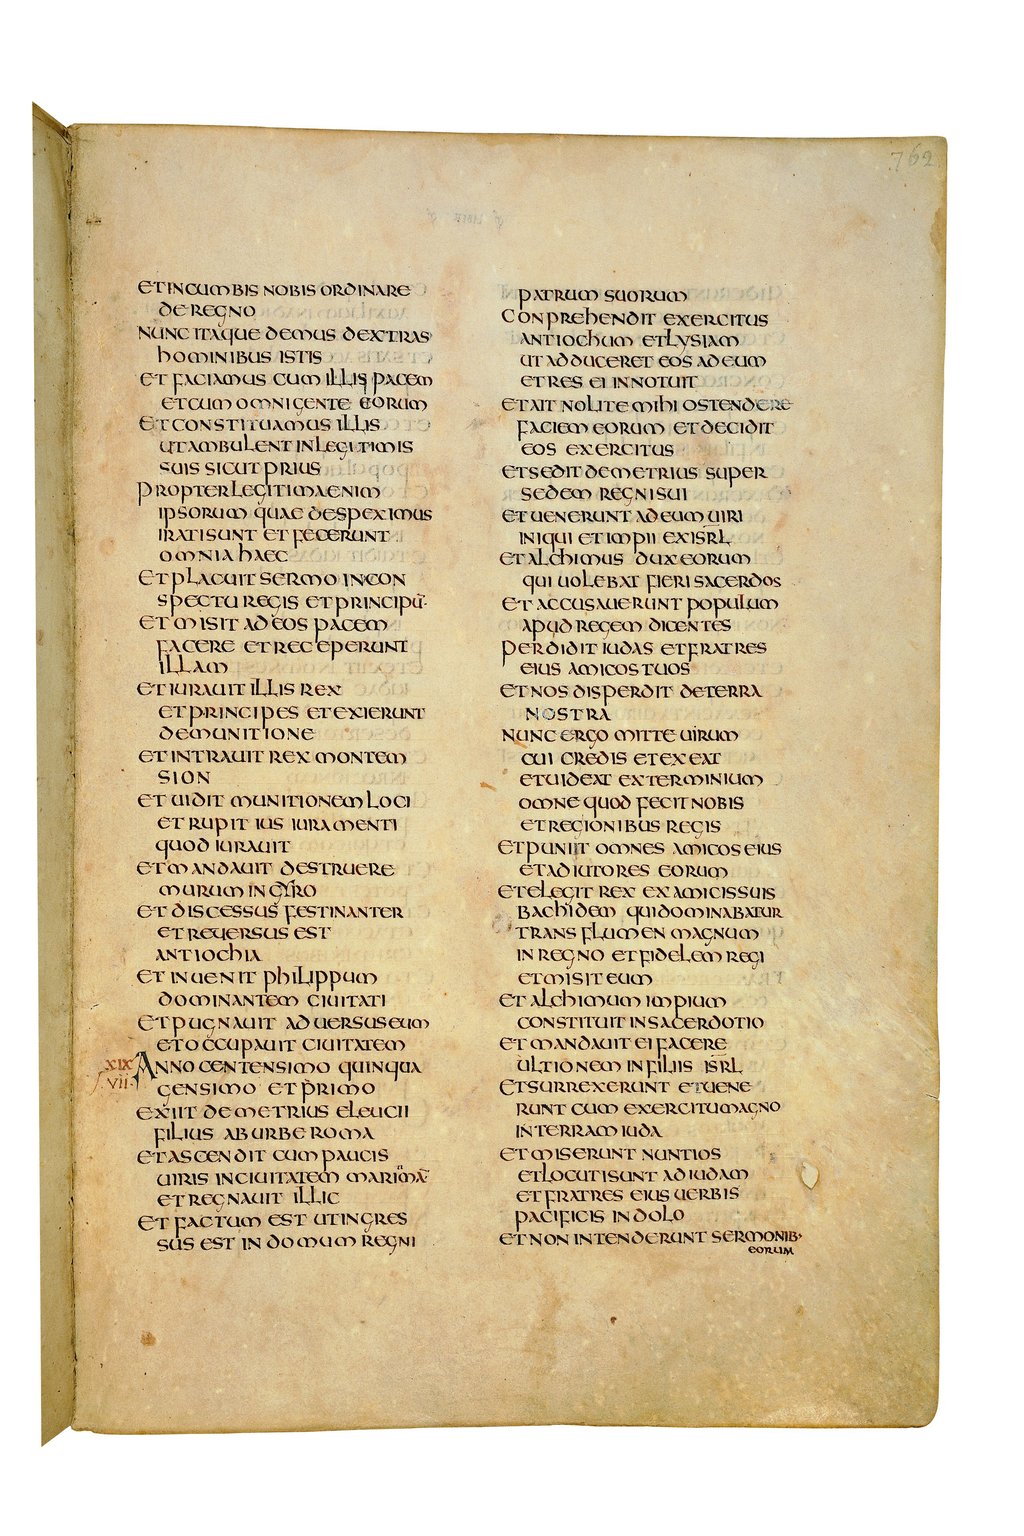 762
ET INCUMBIS NOBIS ORDINARE
DE REGNO
NUNC ITAQUE DEMUS DEXTRAS
HOMINIBUS ISTIS
ET FACIAMUS CUM ILLIS PACEM
ET CUM OMNI GENTE EORUM
ET CONSTITUAMUS ILLIS
UT AMBULENT IN LEGITIMIS
SUIS SICUT PRIUS
PROPTER LEGITIMA ENIM
IPSORUM QUAE DESPEXIMUS
IRATI SUNT ET FECERUNT
OMNIA HAEC
ET PLACUIT SERMO IN CON
SPECTU REGIS ET PRINCIPŪ·
ET MISIT AD EOS PACEM
FACERE ET RECEPERUNT
ILLAM
ET IURAUIT ILLIS REX
ET PRINCIPES ET EXIERUNT
DE MUNITIONE
ET INTRAUIT REX MONTEM
SION
ET UIDIT MUNITIONEM LOCI
ET RUPIT IUS IURAMENTI
QUOD IURAUIT
ET MANDAUIT DESTRUERE
MURUM IN GYRO
ET DISCESSUS FESTINANTER
ET REUERSUS EST
ANTIOCHIA
ET INUENIT PHILIPPUM
DOMINANTEM CIUITATI
ET PUGNAUIT ADUERSUS EUM
ET OCCUPAUIT CIUITATEM
XIX ANNO CENTENSIMO QUINQUA
VII· GENSIMO ET PRIMO
EXIIT DEMETRIUS ELEUCII
FILIUS AB URBE ROMA
ET ASCENDIT CUM PAUCIS
UIRIS IN CIUITATEM MARIMĀ·
ET REGNAUIT ILLIC
ET FACTUM EST UT INGRES
SUS EST IN DOMUM REGNI
PATRUM SUORUM
CONPREHENDIT EXERCITUS
ANTIOCHUM ET LYSIAM
UT ADDUCERET EOS AD EUM
ET RES EI INNOTUIT
ET AIT NOLITE MIHI OSTENDERE
FACIEM EORUM ET DECIDIT
EOS EXERCITUS
ET SEDIT DEMETRIUS SUPER
SEDEM REGNI SUI
ET UENERUNT AD EUM UIRI
INIQUI ET IMPII EX ISRL
ET ALCHIMUS DUX EORUM
QUI UOLEBAT FIERI SACERDOS
ET ACCUSAUERUNT POPULUM
APUD REGEM DICENTES
PERDIDIT IUDAS ET FRATRES
EIUS AMICOS TUOS
ET NOS DISPERDIT DE TERRA
NOSTRA
NUNC ERGO MITTE UIRUM
CUI CREDIS ET EXEAT
ET UIDEAT EXTERMINIUM
OMNE QUOD FECIT NOBIS
ET REGIONIBUS REGIS
ET PUNIIT OMNES AMICOS EIUS
ET ADIUTORES EORUM
ET ELEGIT REX EX AMICIS SUIS
BACHIDEM QUI DOMINABATUR
TRANS FLUMEN MAGNUM
IN REGNO ET FIDELEM REGI
ET MISIT EUM
ET ALCHIMUM IMPIUM
CONSTITUIT IN SACERDOTIO
ET MANDAUIT EI FACERE
ULTIONEM IN FILIIS ISRL
ET SURREXERUNT ET UENE
RUNT CUM EXERCITU MAGNO
IN TERRAM IUDA
ET MISERUNT NUNTIOS
ET LOCUTI SUNT AD IUDAM
ET FRATRES EIUS UERBIS
PACIFICIS IN DOLO
ET NON INTENDERUNT SERMONIB·
EORUM